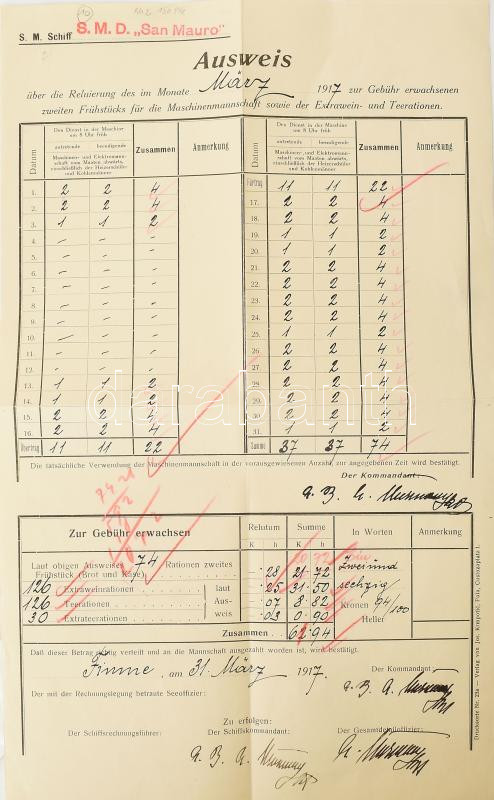 S. M. Schiff S. M. D. „San Mauro"
Ausweis
über die Reluierung des im Monate März 1917 zur Gebühr erwachsenen
zweiten Frühstücks für die Maschinenmannschaft sowie der Extrawein- und Teerationen.
Datum
Den Dienst in der Maschine
um 8 Uhr früh
antretende beendigende
Maschinen- und Elektromann-
schaft vom Maaten abwärts,
einschließlich der Heizerschüler
und Kohlenmänner
Zusammen
Anmerkung
1. 2 2 4
2. 2 2 4
3. 1 1 2
4. - - -
5. - - -
6. - - -
7. - - -
8. - - -
9. - - -
10. - - -
11. - - -
12. - - -
13. 1 1 2
14. 1 1 2
15. 2 2 4
16. 2 2 4
Übertrag 11 11 22
Datum
Den Dienst in der Maschine
um 8 Uhr früh
antretende beendigende
Maschinen- und Elektromann-
schaft vom Maaten abwärts,
einschließlich der Heizerschüler
und Kohlenmänner
Zusammen
Anmerkung
Fürtrag 11 11 22
17. 2 2 4
18. 2 2 4
19. 1 1 2
20. 1 1 2
21. 2 2 4
22. 2 2 4
23. 2 2 4
24. 2 2 4
25. 1 1 2
26. 2 2 4
27. 2 2 4
28. 2 2 4
29. 2 2 4
30. 2 2 4
31. 1 1 2
Summe 37 37 74
Die tatsächliche Verwendung der Maschinenmannschaft in der vorausgewiesenen Anzahl, zur angegebenen Zeit wird bestätigt.
Der Kommandant:
darabanth
Zur Gebühr erwachsen
Relutum Summe In Worten Anmerkung
K h K h
Laut obigen Ausweises 74 Rationen zweites
Frühstück (Brot und Käse) . 28 21 72 Zweiund
126 Extraweinrationen laut . 25 31 50 sechzig
126 Teerationen Aus- . 07 8 82 Kronen 94/100
30 Extrateerationen weis . 03 0 90 Heller
Zusammen 62 94
Daß dieser Betrag richtig verteilt und an die Mannschaft ausgezahlt worden ist, wird bestätigt.
Fiume, am 31. März 1917
Der Kommandant:
Der mit der Rechnungslegung betraute Seeoffizier:
Zu erfolgen:
Der Schiffsrechnungsführer: Der Schiffskommandant: Der Gesamtdetailoffizier:
Drucksorte Nr. 25a — Verlag von Jos. Krmpotić, Pola, Custozaplatz 1.